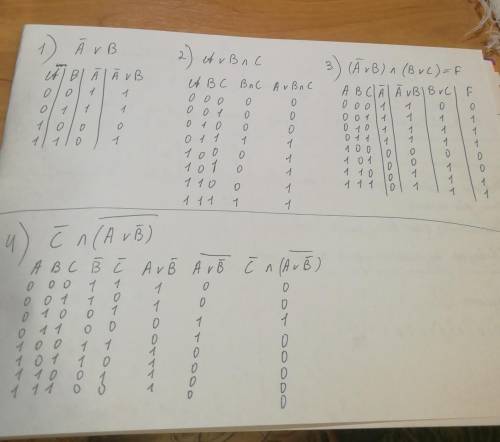 1) Ā v B
A B Ā Ā v B
0 0 1 1
0 1 1 1
1 0 0 0
1 1 0 1
2) A v B ∧ C
A B C B∧C A v B∧C
0 0 0 0 0
0 0 1 0 0
0 1 0 0 0
0 1 1 1 1
1 0 0 0 1
1 0 1 0 1
1 1 0 0 1
1 1 1 1 1
3) (Ā v B) ∧ (B v C) = F
A B C Ā Ā v B B v C F
0 0 0 1 1 0 0
0 0 1 1 1 1 1
0 1 0 1 1 1 1
0 1 1 1 1 1 1
1 0 0 0 0 0 0
1 0 1 0 0 1 0
1 1 0 0 1 1 1
1 1 1 0 1 1 1
4) C̅ ∧ (A v B̅)̅
A B C B̅ C̅ A v B̅ A v B̅̅ C̅ ∧ (A v B̅)̅
0 0 0 1 1 1 0 0
0 0 1 1 0 1 0 0
0 1 0 0 1 0 1 1
0 1 1 0 0 0 1 0
1 0 0 1 1 1 0 0
1 0 1 1 0 1 0 0
1 1 0 0 1 1 0 0
1 1 1 0 0 1 0 0